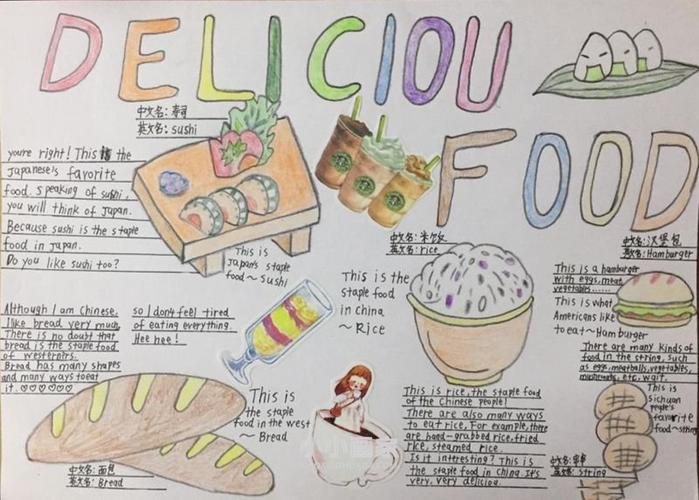 DELICIOU
FOOD
中文名: 寿司
英文名: sushi
you're right! This is the
Japanese's favorite
food. speaking of sushi,
you will think of Japan.
Because sushi is the staple
food in Japan.
Do you like sushi too?
This is
Japan's staple
food ~ sushi
中文名: 米饭
英文名: rice
This is the
staple food
in china
~ Rice
中文名: 汉堡包
英文名: Hamburger
This is a hamburger
with eggs, meat,
vegetables......
This is what
Americans like
to eat ~ Hamburger
There are many kinds of
food in the string, such
as egg, meatballs, vegetables,
mushrooms, etc, wait.
Although I am Chinese.
I like bread very much,
There is no doubt that
bread is the staple food
of westerners.
Bread has many shapes
and many ways to eat
it. ♡♡♡♡♡♡
so I don't feel tired
of eating everything.
Hee hee!
This is
the staple
food in the west
~ Bread
中文名: 面包
英文名: Bread
This is rice, the staple food
of the Chinese people!
There are also many ways
to eat rice. For example, there
are hand-grabbed rice, fried
rice, steamed rice.
Is it interesting? This is
the staple food in China. It's
very, very deliciou.
This is
sichuan
people's
favorite
food ~ string
中文名: 串串
英文名: string